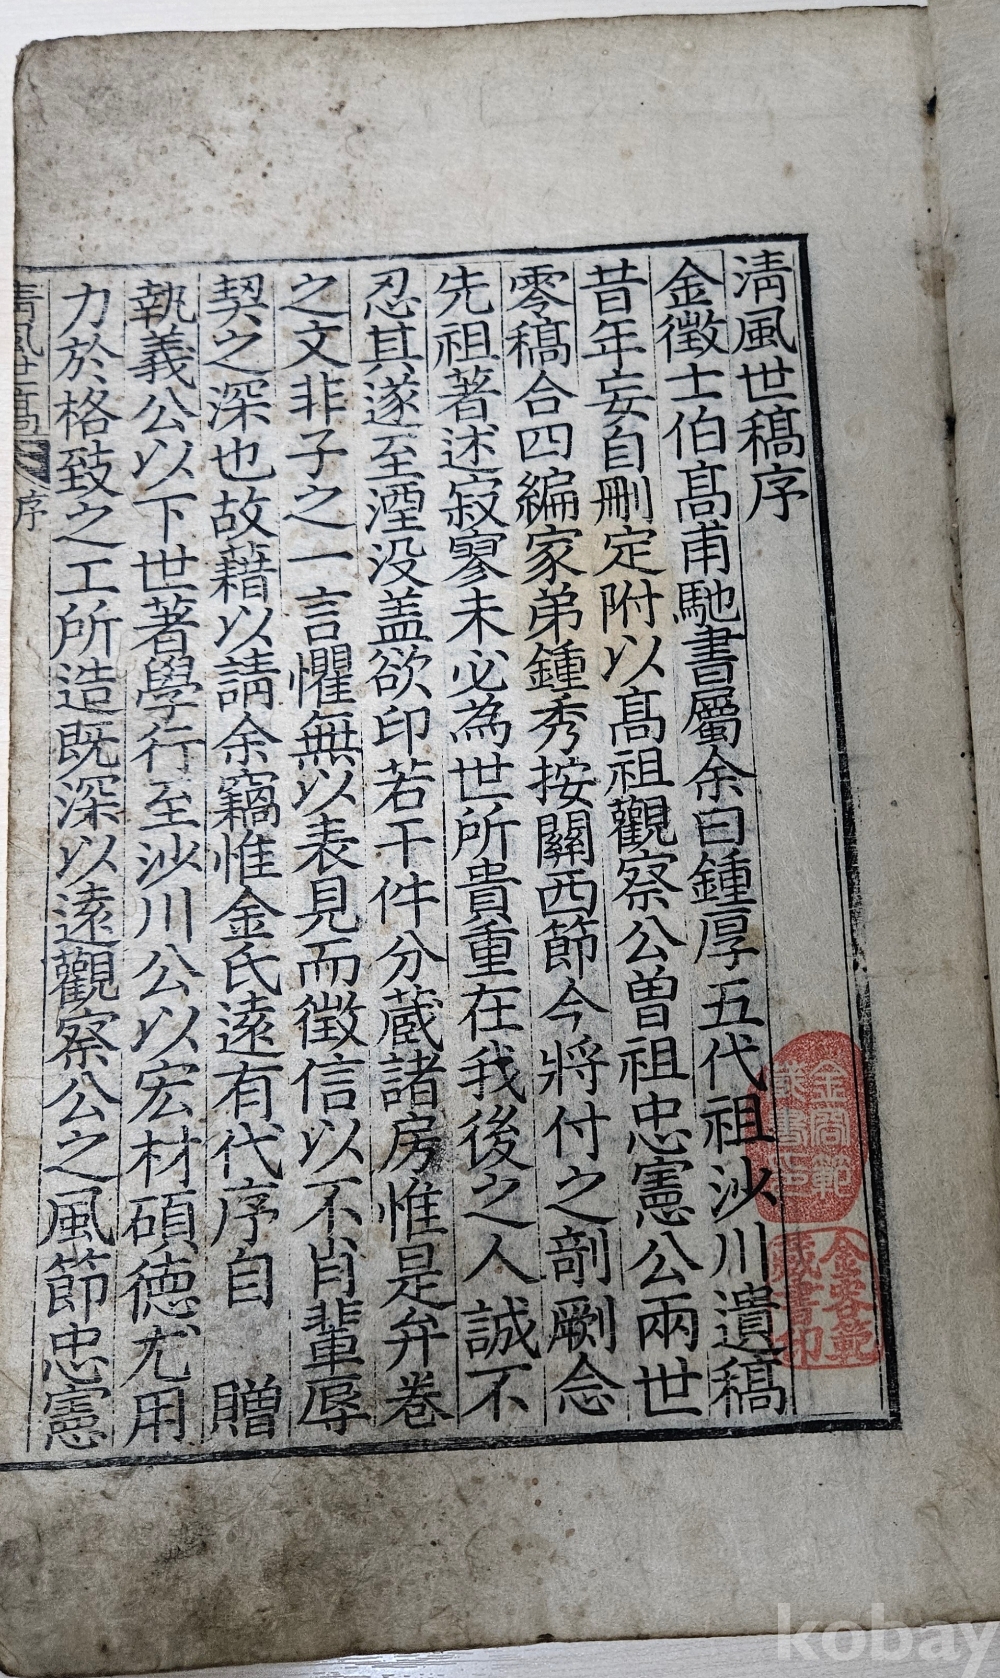 淸風世稿序
金徵士伯髙甫馳書屬余曰鍾厚五代祖沙川遺稿
昔年妄自刪定附以髙祖觀察公曾祖忠憲公兩世
零稿合四編家弟鍾秀按關西節今將付之剞劂念
先祖著述寂寥未必為世所貴重在我後之人誠不
忍其遂至湮没盖欲印若干件分藏諸房惟是弁卷
之文非子之一言懼無以表見而徵信以不肖輩辱
契之深也故藉以請余竊惟金氏遠有代序自　贈
執義公以下世著學行至沙川公以宏材碩德尤用
力於格致之工所造既深以遠觀察公之風節忠憲
淸風世稿　序
金容範
藏書印
kobay